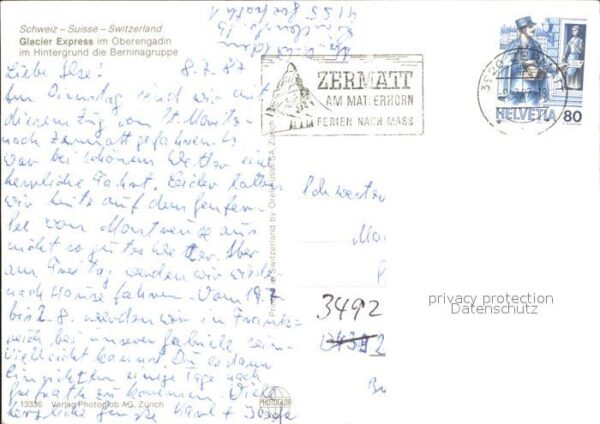 Schweiz – Suisse – Switzerland
Glacier Express im Oberengadin
im Hintergrund die Berninagruppe
4155 Grefrath 1
Liebe Ilse! 8.7.87
Am Dienstag sind wir mit
diesem Zug von St. Moritz
nach Zermatt gefahren. Es
war bei schönem Wetter eine
herrliche Fahrt. Leider hatten
wir heute auf dem Genfer-
See von Montreux aus
nicht so gutes Wetter. Aber
am Freitag werden wir wieder
nach Hause fahren. Vom 19.7.
bis 2.8. werden wir in Frank-
reich bei unserer Gabriele sein.
Vielleicht kannst Du es dann
einrichten einige Tage nach
Grefrath zu kommen. Viele
herzliche Grüße Karl + Josefa
13336 Verlag Photoglob AG, Zürich
PHOTOGLOB
Switzerland by Orell Füssli SA Zürich
ZERMATT
AM MATTERHORN
FERIEN NACH MASS
3920 ZERMATT
HELVETIA 80
3492
privacy protection
Datenschutz